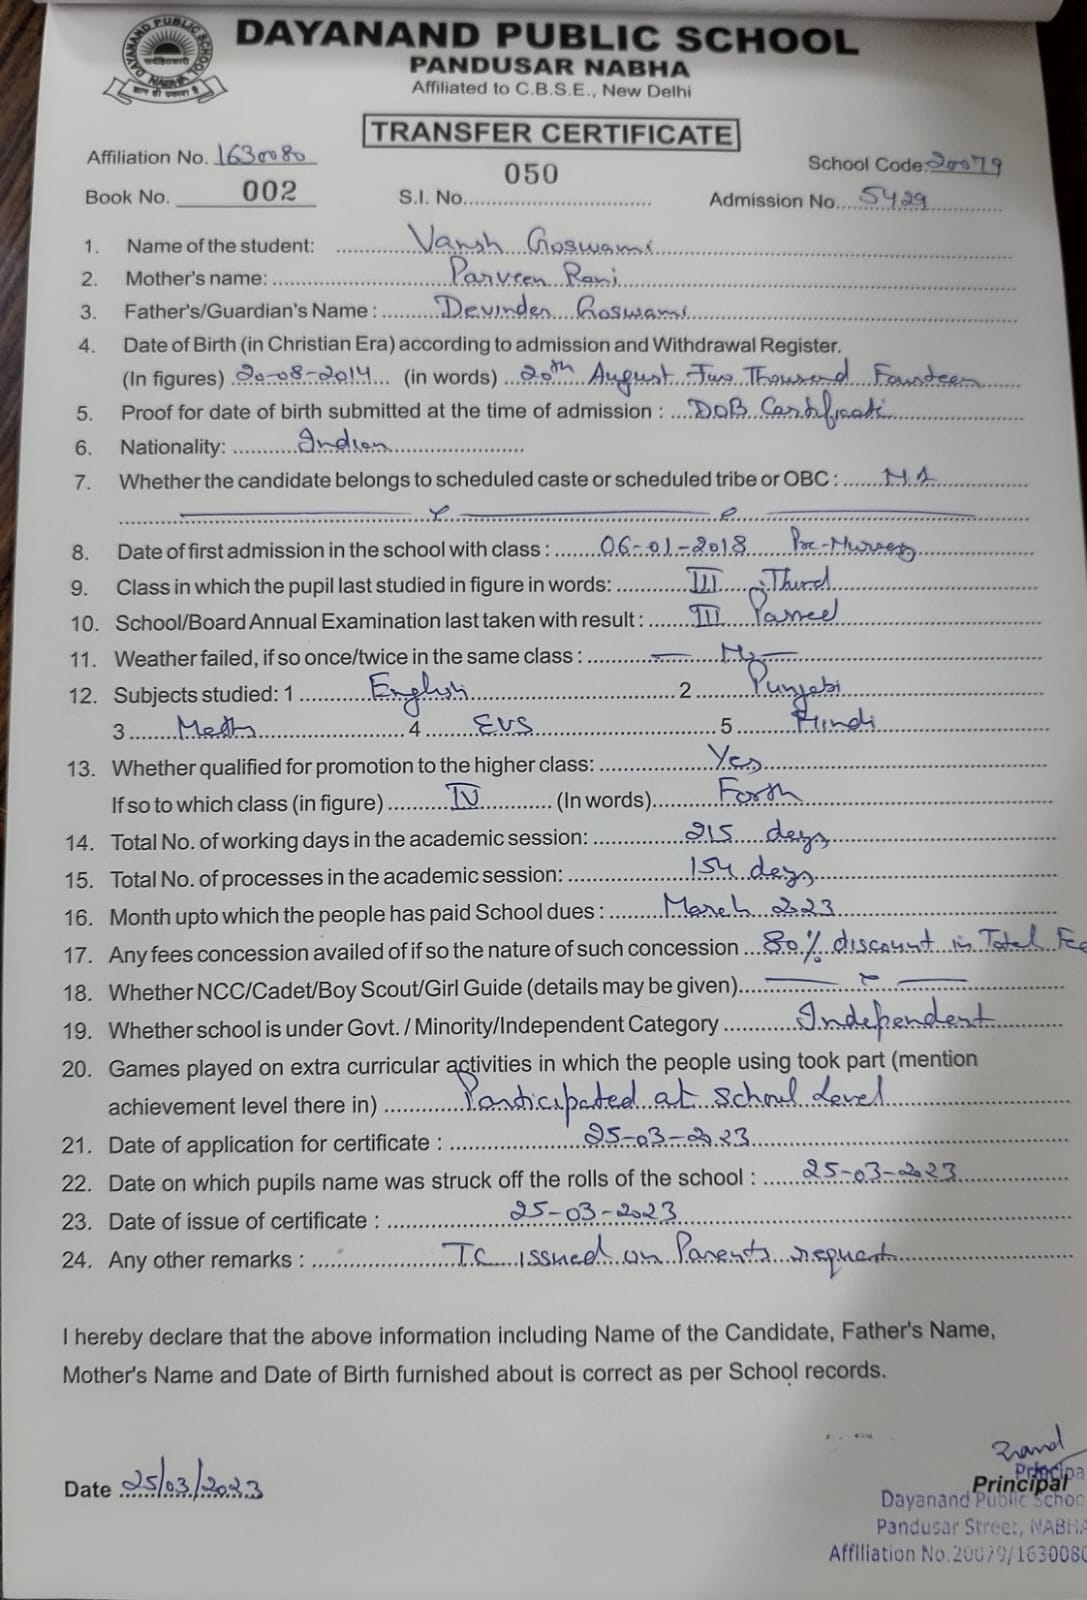 DAYANAND PUBLIC SCHOOL NABHA
DAYANAND PUBLIC SCHOOL
PANDUSAR NABHA
Affiliated to C.B.S.E., New Delhi
TRANSFER CERTIFICATE
Affiliation No. 1630080
School Code: 20079
Book No. 002
S.I. No. 050
Admission No. 5429
1. Name of the student: Vansh Goswami
2. Mother's name: Parveen Rani
3. Father's/Guardian's Name : Devinder Goswami
4. Date of Birth (in Christian Era) according to admission and Withdrawal Register.
(In figures) 20-08-2014 (in words) 20th August Two Thousand Fourteen
5. Proof for date of birth submitted at the time of admission : DOB Certificate
6. Nationality: Indian
7. Whether the candidate belongs to scheduled caste or scheduled tribe or OBC : N.A
8. Date of first admission in the school with class : 06-01-2018 Pre-Nursery
9. Class in which the pupil last studied in figure in words: III Third
10. School/Board Annual Examination last taken with result : III Passed
11. Weather failed, if so once/twice in the same class :
12. Subjects studied: 1 English 2 Punjabi
3 Maths 4 EVS 5 Hindi
13. Whether qualified for promotion to the higher class: Yes
If so to which class (in figure) IV (In words) Forth
14. Total No. of working days in the academic session: 215 days
15. Total No. of processes in the academic session: 154 days
16. Month upto which the people has paid School dues : March 2023
17. Any fees concession availed of if so the nature of such concession 80% discount in Total Fee
18. Whether NCC/Cadet/Boy Scout/Girl Guide (details may be given)
19. Whether school is under Govt. / Minority/Independent Category Independent
20. Games played on extra curricular activities in which the people using took part (mention
achievement level there in) Participated at School Level
21. Date of application for certificate : 25-03-2023
22. Date on which pupils name was struck off the rolls of the school : 25-03-2023
23. Date of issue of certificate : 25-03-2023
24. Any other remarks : TC issued on Parents request
I hereby declare that the above information including Name of the Candidate, Father's Name,
Mother's Name and Date of Birth furnished about is correct as per School records.
Date 25/03/2023
Principal
Principal
Dayanand Public School
Pandusar Street, NABHA
Affiliation No.20079/1630080